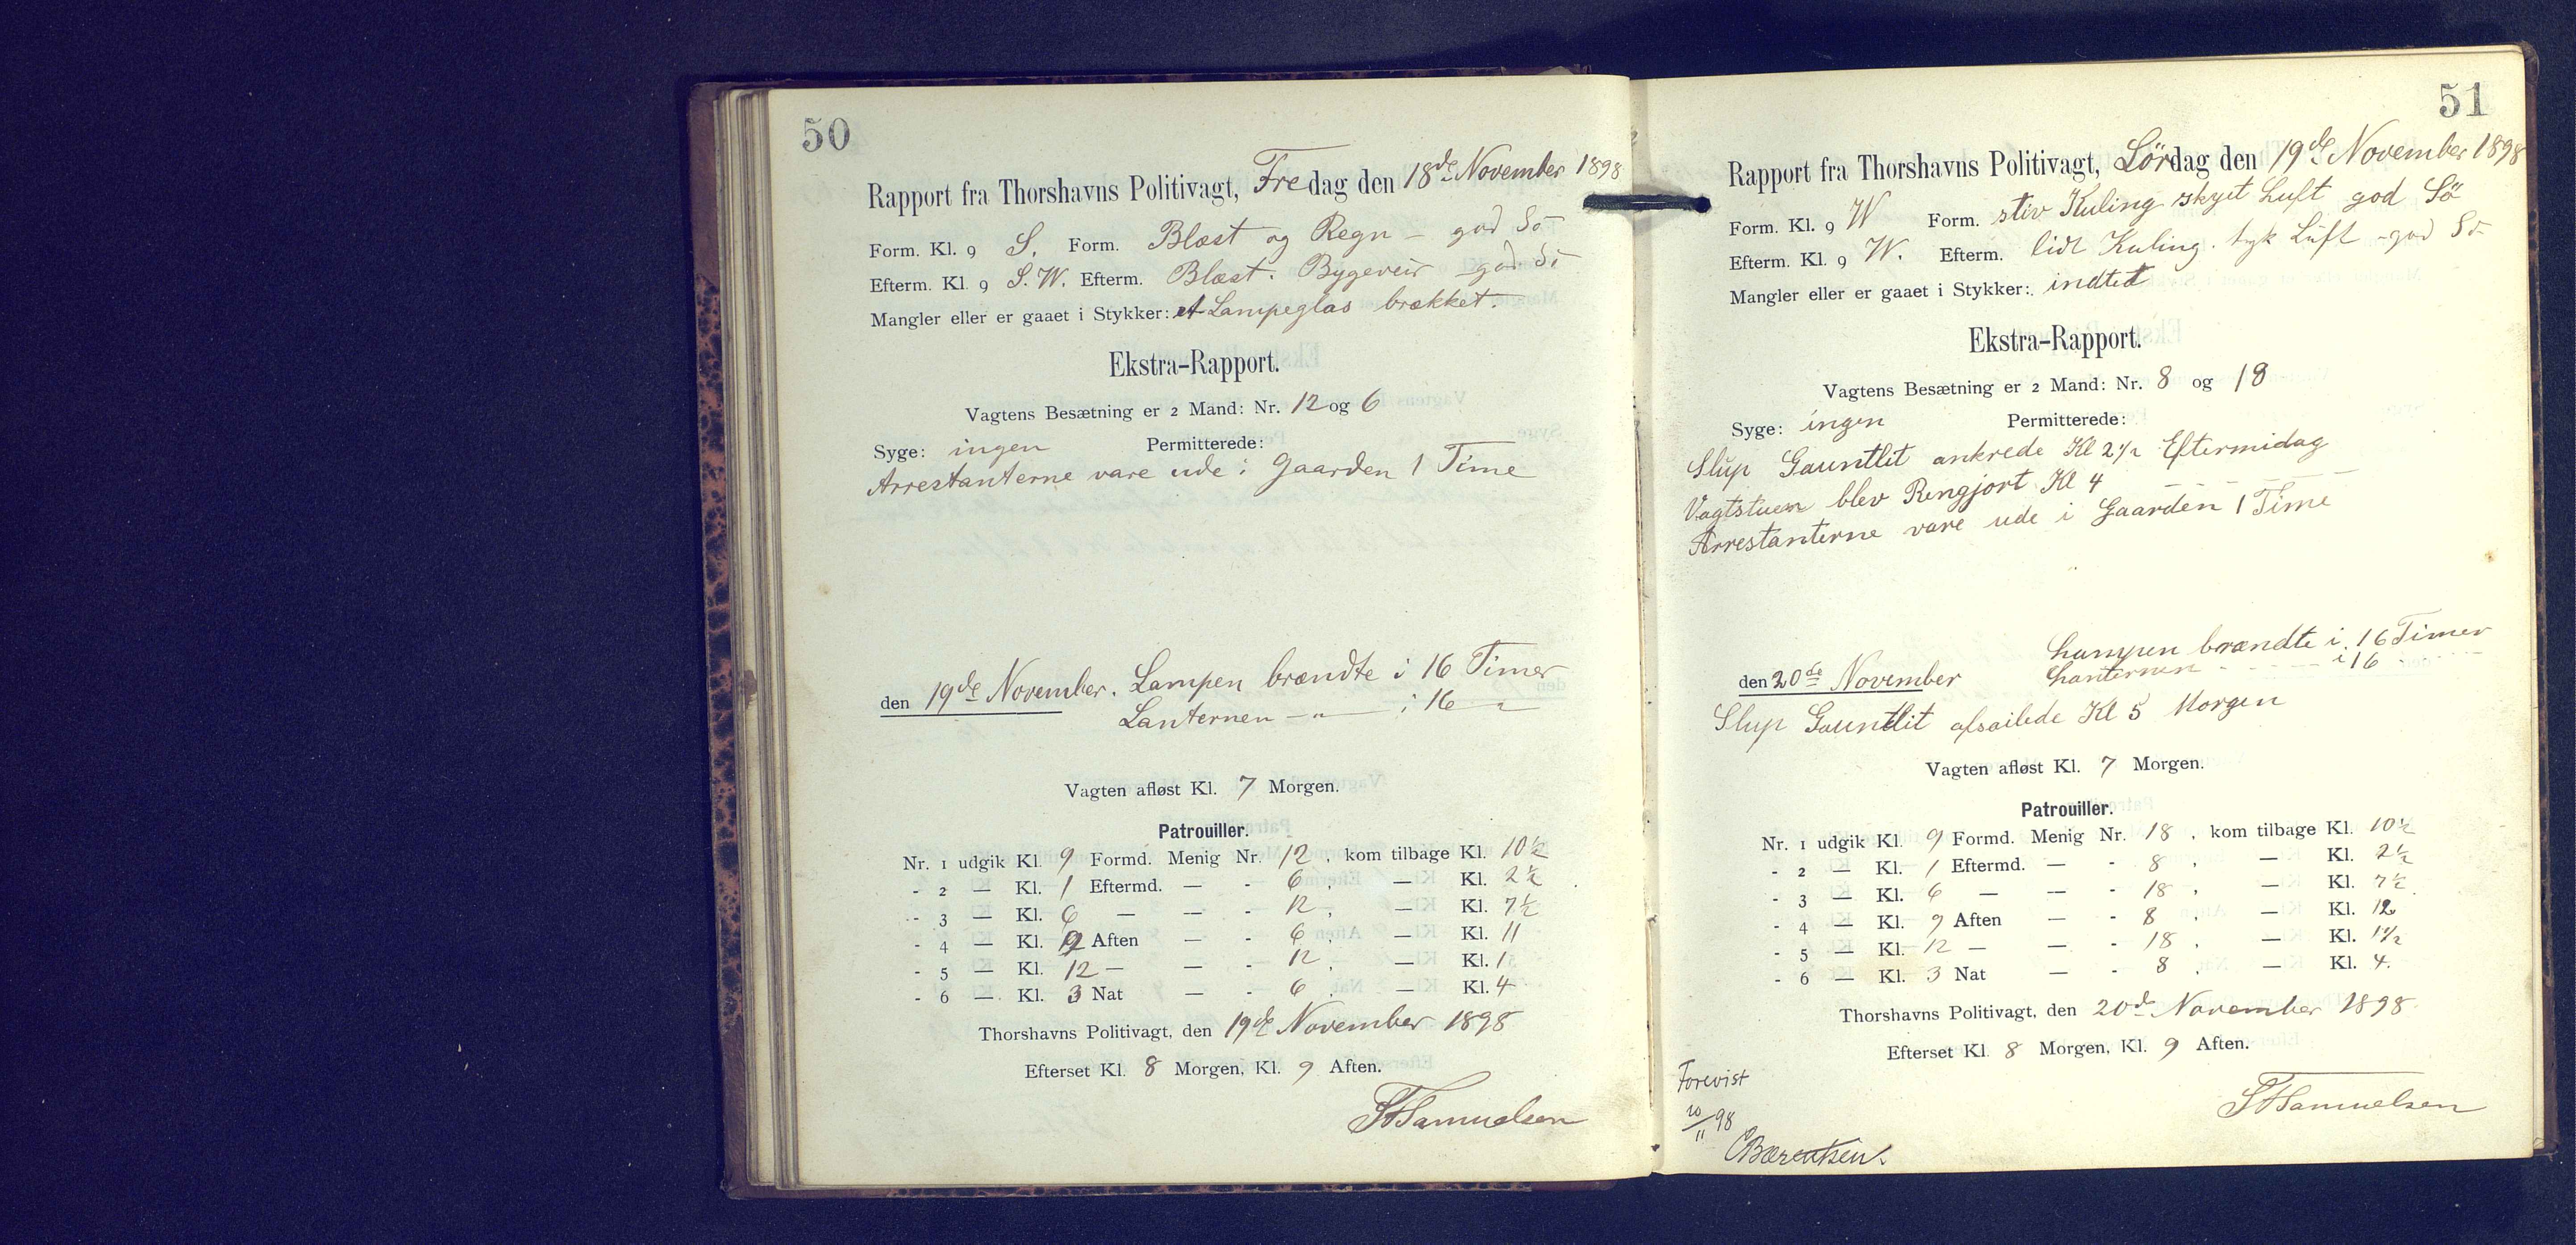 50
Rapport fra Thorshavns Politivagt, Fredag den 18de November 1898
Form. Kl. 9 S. Form. Blæst og Regn – god Sö
Efterm. Kl. 9 S.W. Efterm. Blæst. Bygeveir god Sö
Mangler eller er gaaet i Stykker: et Lampeglas brækket.
Ekstra-Rapport.
Vagtens Besætning er 2 Mand: Nr. 12 og 6
Syge: ingen Permitterede:
Arrestanterne vare ude i Gaarden 1 Time
den 19de November. Lampen brændte i 16 Timer
Lanternen – " — i 16 "
Vagten afløst Kl. 7 Morgen.
Patrouiller.
Nr. 1 udgik Kl. 9 Formd. Menig Nr. 12 , kom tilbage Kl. 10½
- 2 — Kl. 1 Eftermd. — - 6 , — Kl. 2½
- 3 — Kl. 6 — — - 12 , — Kl. 7½
- 4 — Kl. 9 Aften — - 6 , — Kl. 11
- 5 — Kl. 12 — — - 12 , — Kl. 1
- 6 — Kl. 3 Nat — - 6 , — Kl. 4
Thorshavns Politivagt, den 19de November 1898
Efterset Kl. 8 Morgen, Kl. 9 Aften.
Samuelsen
51
Rapport fra Thorshavns Politivagt, Lördag den 19de November 1898
Form. Kl. 9 W Form. stiv Kuling skyet Luft god Sö
Efterm. Kl. 9 W. Efterm. lidt Kuling. tyk Luft – god Sö
Mangler eller er gaaet i Stykker: indtet
Ekstra-Rapport.
Vagtens Besætning er 2 Mand: Nr. 8 og 18
Syge: ingen Permitterede:
Slup Gauntlit ankrede Kl 2½ Eftermidag
Vagtstuen blev Rengjort Kl 4 – – – –
Arrestanterne vare ude i Gaarden 1 Time
den 20de November Lampen brændte i 16 Timer
Lanternen - - - - i 16 - - - -
Slup Gauntlit afsailede Kl 5 Morgen
Vagten afløst Kl. 7 Morgen.
Patrouiller.
Nr. 1 udgik Kl. 9 Formd. Menig Nr. 18 , kom tilbage Kl. 10½
- 2 — Kl. 1 Eftermd. — - 8 , — Kl. 2½
- 3 — Kl. 6 — — - 18 , — Kl. 7½
- 4 — Kl. 9 Aften — - 8 , — Kl. 12
- 5 — Kl. 12 — — - 18 , — Kl. 1½
- 6 — Kl. 3 Nat — - 8 , — Kl. 4.
Thorshavns Politivagt, den 20de November 1898.
Efterset Kl. 8 Morgen, Kl. 9 Aften.
Samuelsen
Forevist
20/11 98
CBærentsen.